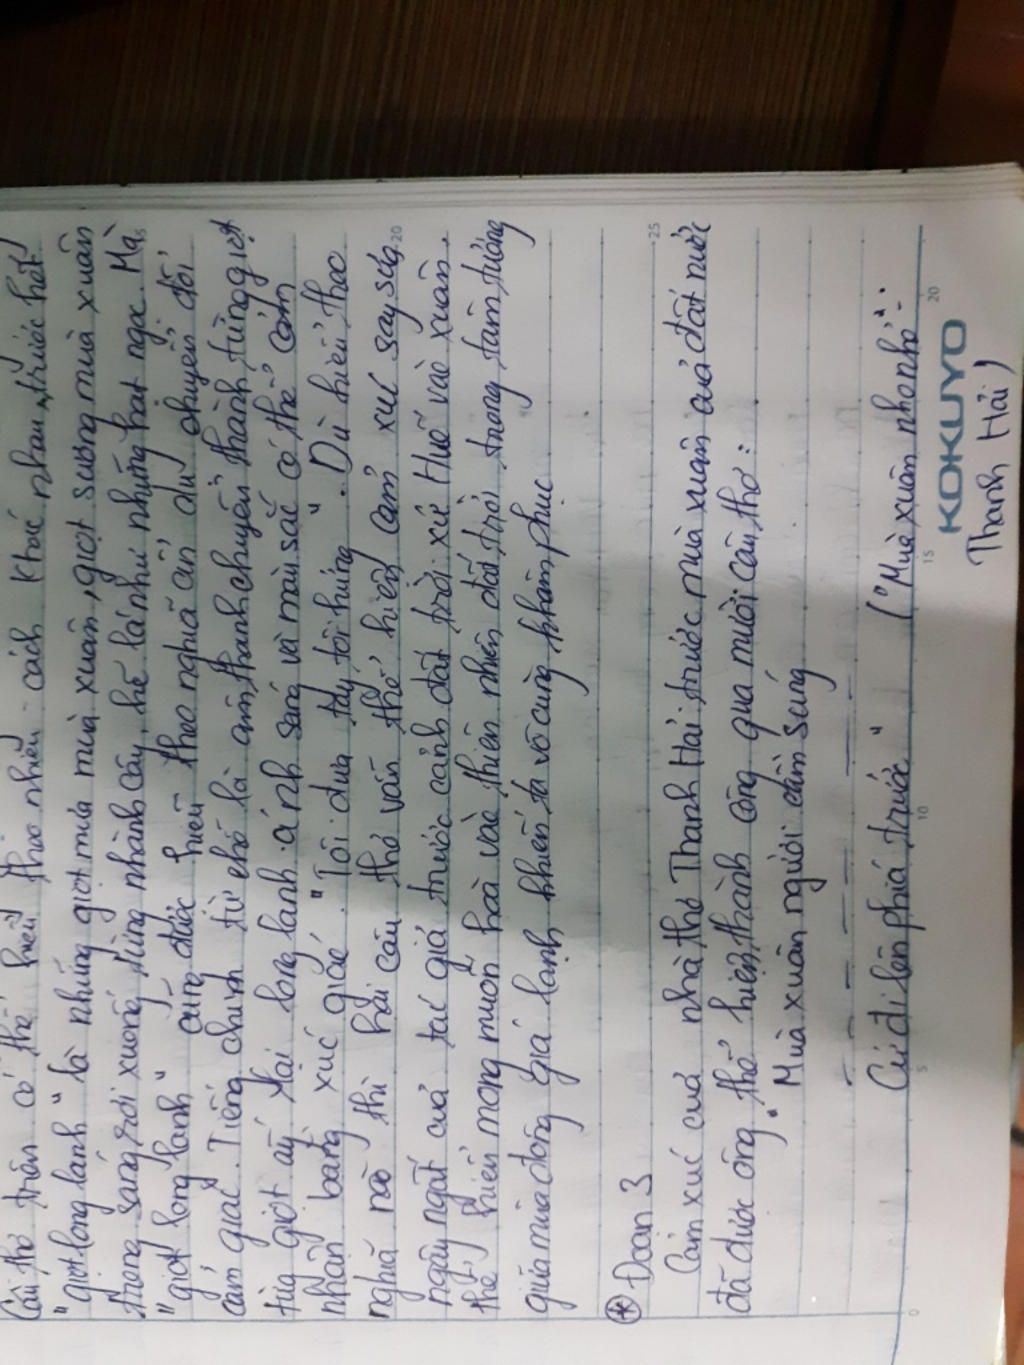 Câu thơ trên có thể hiểu theo nhiều cách khác nhau, trước hết
"giọt long lanh" là những giọt mưa mùa xuân, giọt sương mùa xuân
trong sáng rơi xuống từng nhành cây, kẽ lá như những hạt ngọc. Mà
"giọt long lanh" cũng được hiểu theo nghĩa ẩn dụ chuyển đổi
cảm giác. Tiếng chim từ chỗ là âm thanh chuyển thành từng giọt
từng giọt ấy lại long lanh ánh sáng và màu sắc có thể cảm
nhận bằng xúc giác. "Tôi đưa tay tôi hứng". Dù hiểu theo
nghĩa nào thì hai câu thơ vẫn thể hiện cảm xúc say sưa
ngây ngất của tác giả trước cảnh đất trời xứ Huế vào xuân,
thể hiện mong muốn hoà vào thiên nhiên đất trời trong tâm tưởng
giữa mùa đông giá lạnh khiến ta vô cùng khâm phục
* Đoạn 3
Cảm xúc của nhà thơ Thanh Hải trước mùa xuân của đất nước
đã được ông thể hiện thành công qua mười câu thơ:
"Mùa xuân người cầm súng
Cứ đi lên phía trước" ("Mùa xuân nho nhỏ" -
Thanh Hải)
KOKUYO